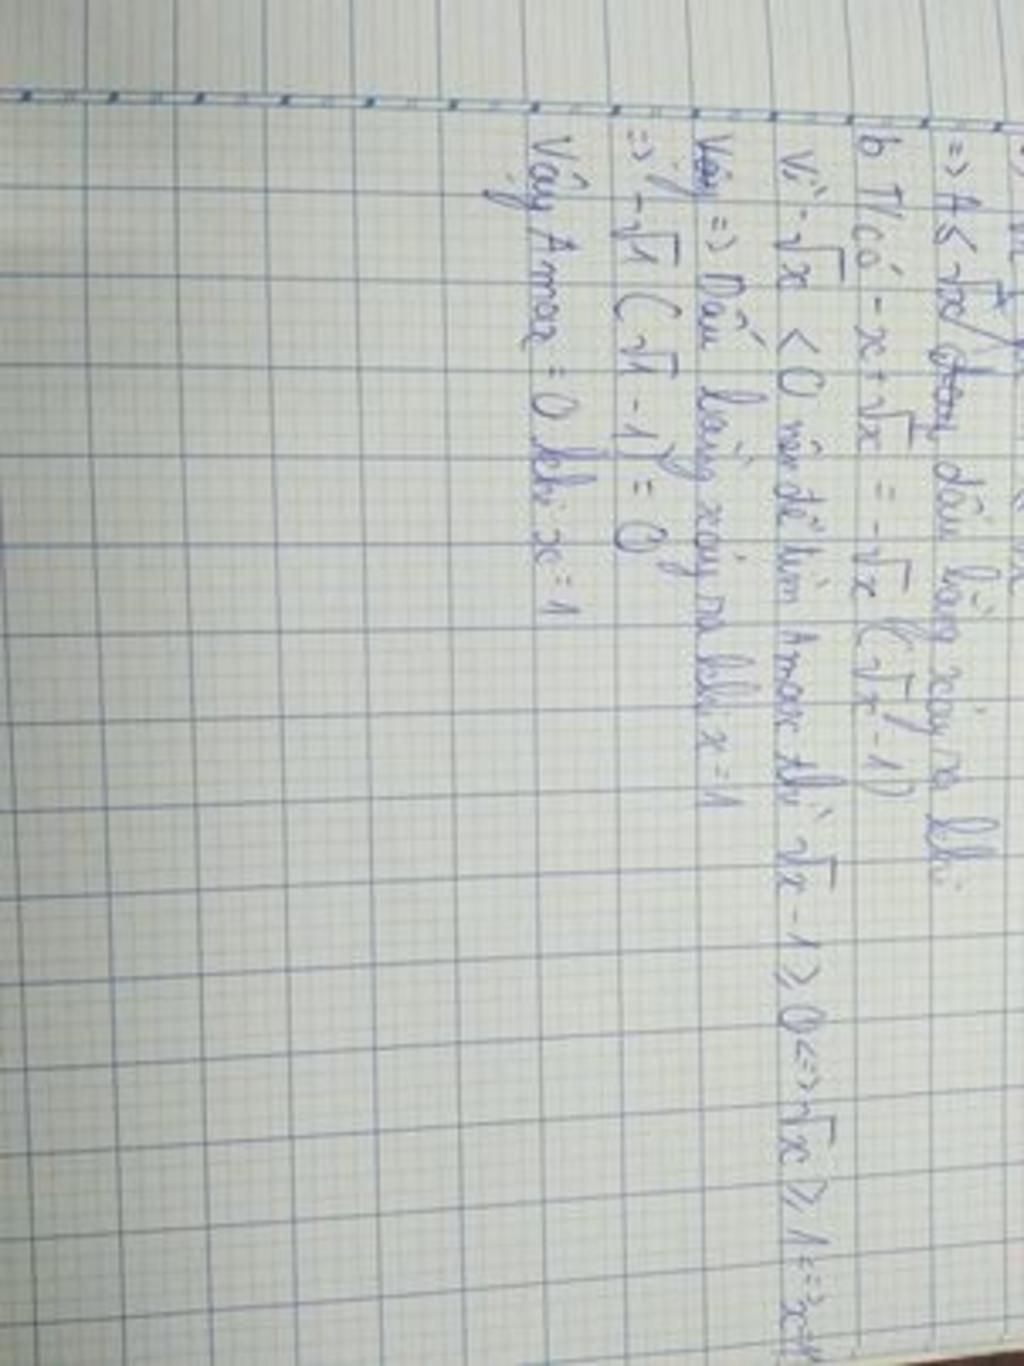 => A ≤ √x / dấu bằng xảy ra khi
b T/có - x + √x = - √x (√x - 1)
Vì - √x < 0 nên để tìm Amax thì √x - 1 ≥ 0 <=> √x ≥ 1 <=> x
=> Dấu bằng xảy ra khi x = 1
=> - √1 (√1 - 1) = 0
Vậy Amax = 0 khi x = 1